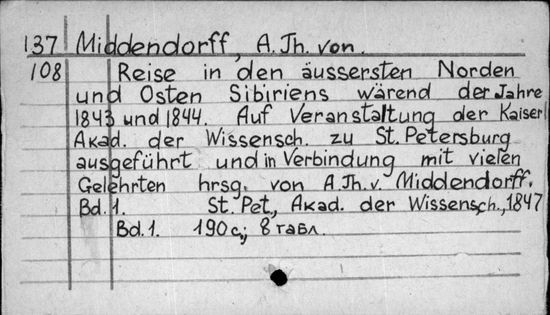 137 Middendorff, A. Th. von.
108 Reise in den äussersten Norden
und Osten Sibiriens wärend der Jahre
1843 und 1844. Auf Veranstaltung der Kaiserl
Akad. der Wissensch. zu St. Petersburg
ausgeführt und in Verbindung mit vielen
Gelehrten hrsg. von A. Th. v. Middendorff.
Bd. 1. St. Pet., Akad. der Wissensch., 1847
Bd. 1. 190 с.; 8 табл.